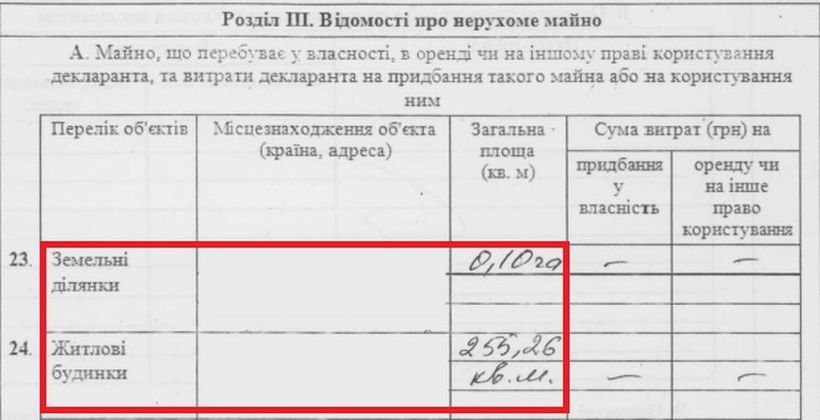 Розділ III. Відомості про нерухоме майно
А. Майно, що перебуває у власності, в оренді чи на іншому праві користування
декларанта, та витрати декларанта на придбання такого майна або на користування
ним
Перелік об'єктів
Місцезнаходження об'єкта
(країна, адреса)
Загальна
площа
(кв. м)
Сума витрат (грн) на
придбання
у
власність
оренду чи
на інше
право
користування
23. Земельні
ділянки
0,10 га
—
—
24. Житлові
будинки
255,26
кв.м.
—
—